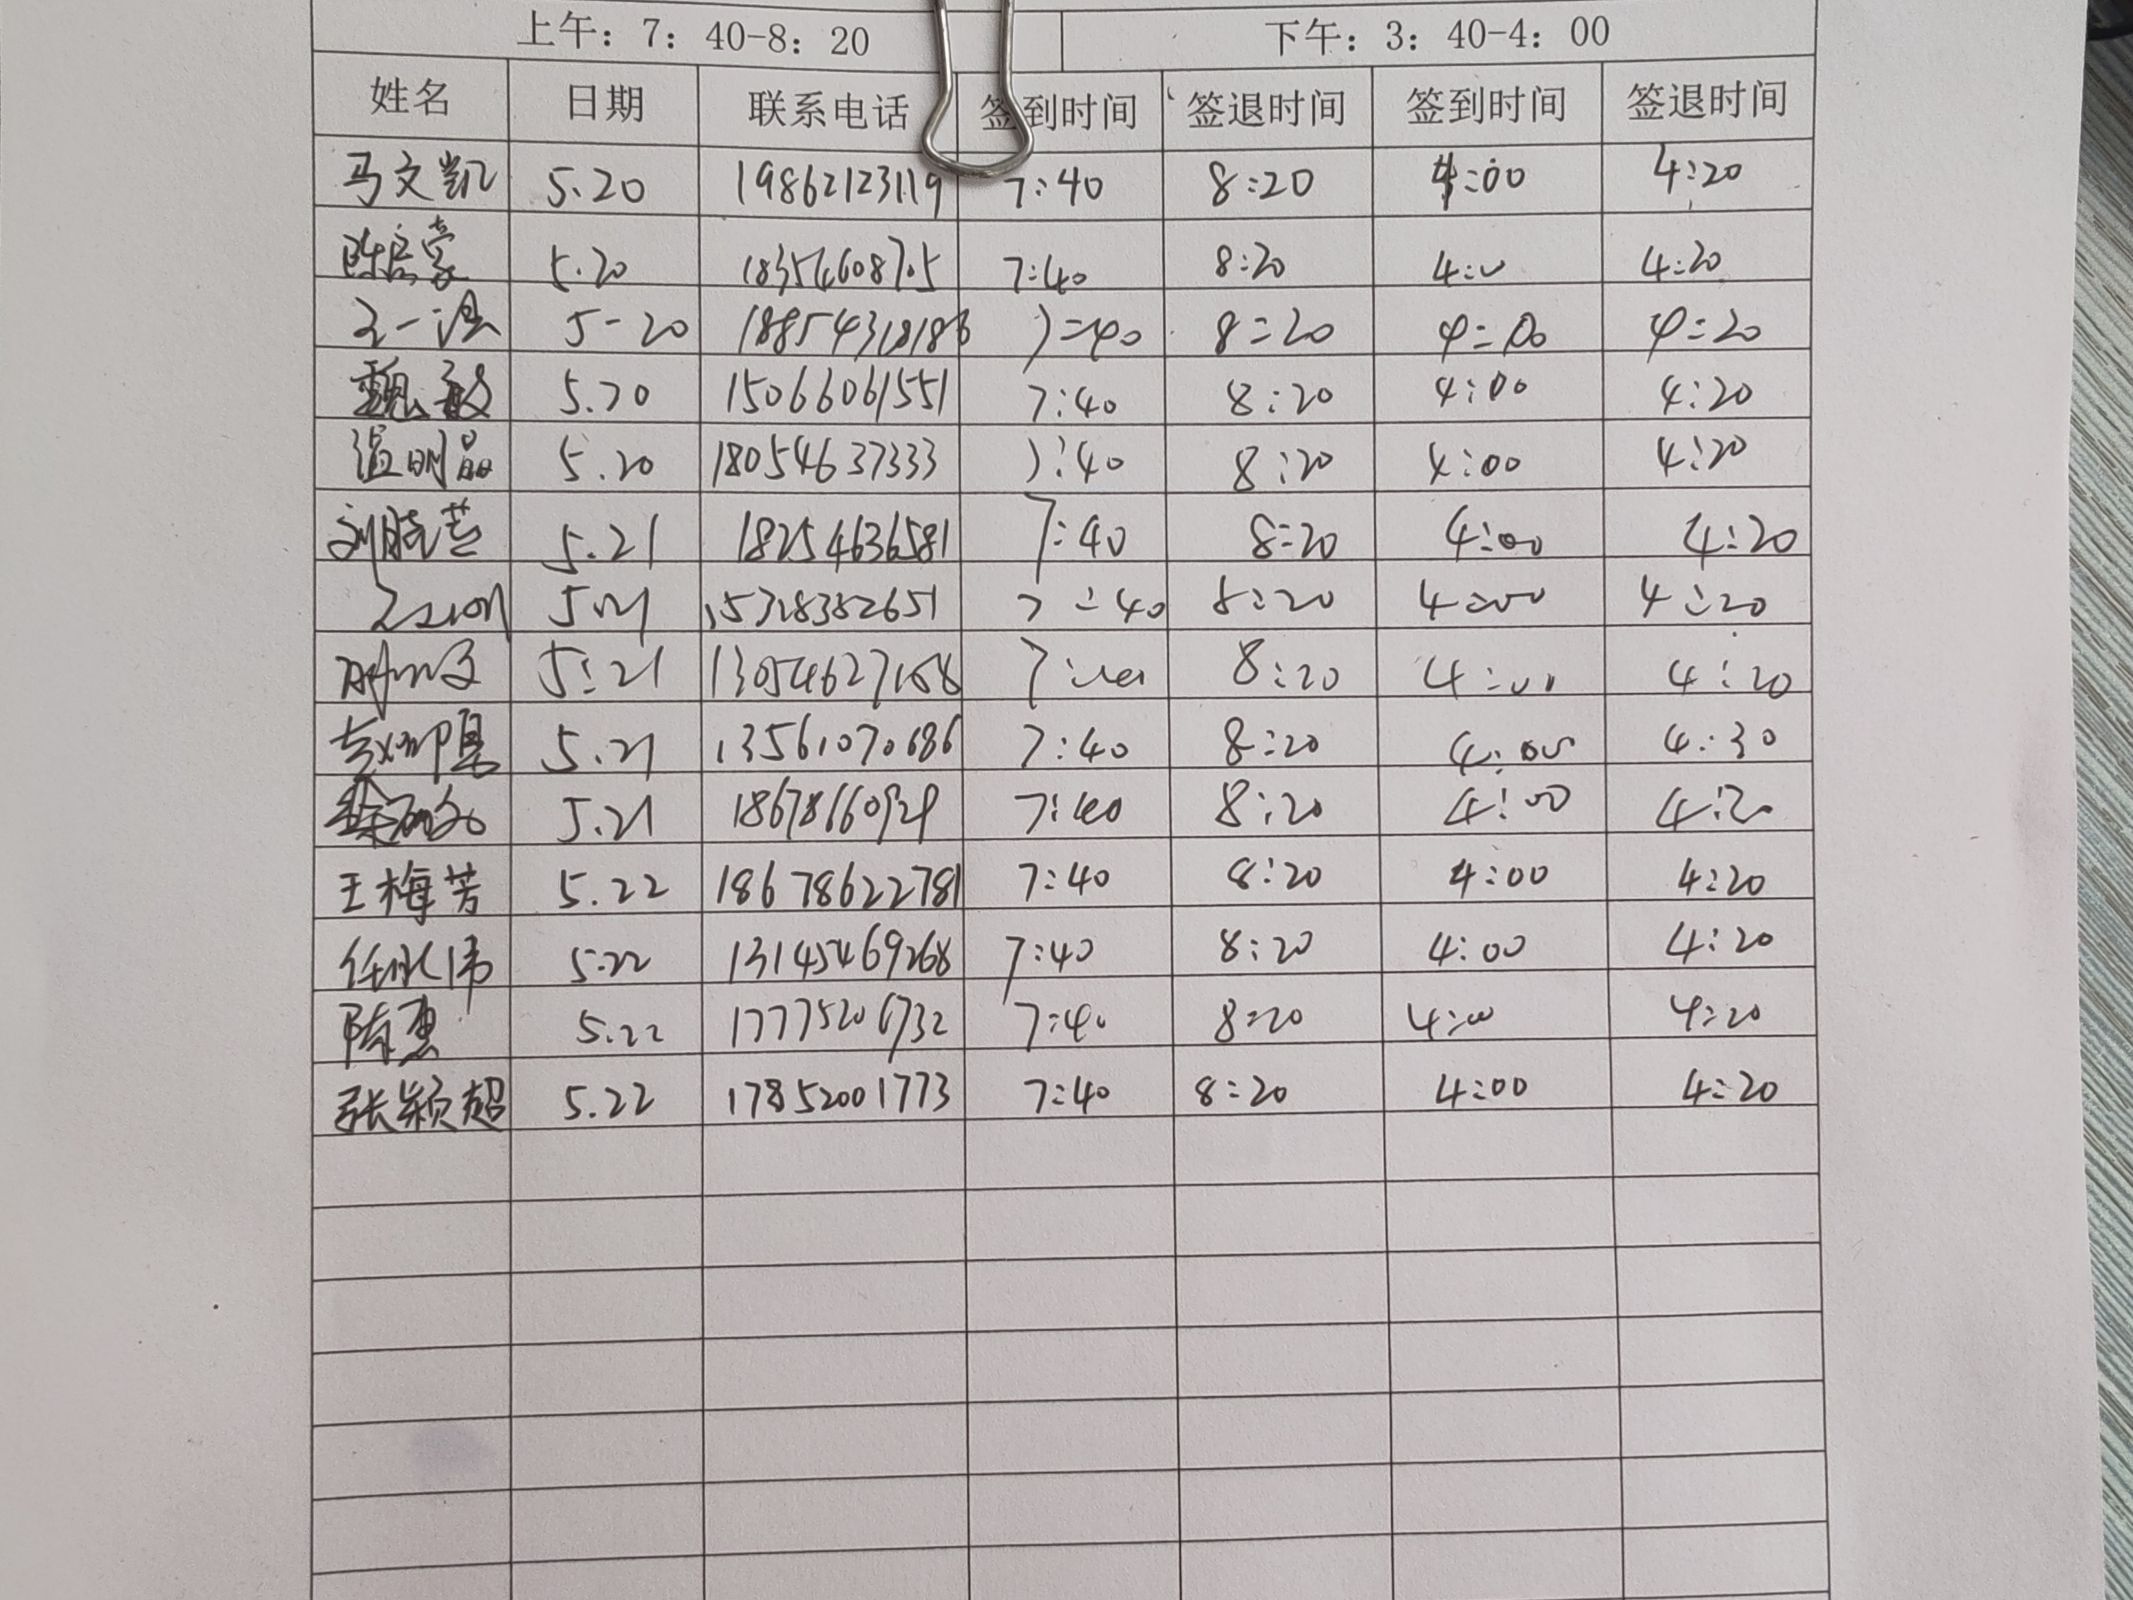 上午：7：40-8：20 下午：3：40-4：00
姓名 日期 联系电话 签到时间 签退时间 签到时间 签退时间
马文凯 5.20 19862123119 7:40 8:20 4:00 4:20
陈启豪 5.20 18354608705 7:40 8:20 4:00 4:20
5-20 7:40 8:20 4:00 4:20
魏敏 5.20 15066061551 7:40 8:20 4:00 4:20
温明晶 5.20 18054637333 7:40 8:20 4:00 4:20
刘晓芸 5.21 18254636581 7:40 8:20 4:00 4:20
5.21 15328382651 7:40 8:20 4:00 4:20
5.21 13054627168 7:40 8:20 4:00 4:20
5.21 13561070686 7:40 8:20 4:00 4:30
5.21 18678660929 7:40 8:20 4:00 4:20
王梅芳 5.22 18678622781 7:40 8:20 4:00 4:20
任永伟 5.22 13145469268 7:40 8:20 4:00 4:20
5.22 17775206732 7:40 8:20 4:00 4:20
张颖超 5.22 17852001773 7:40 8:20 4:00 4:20